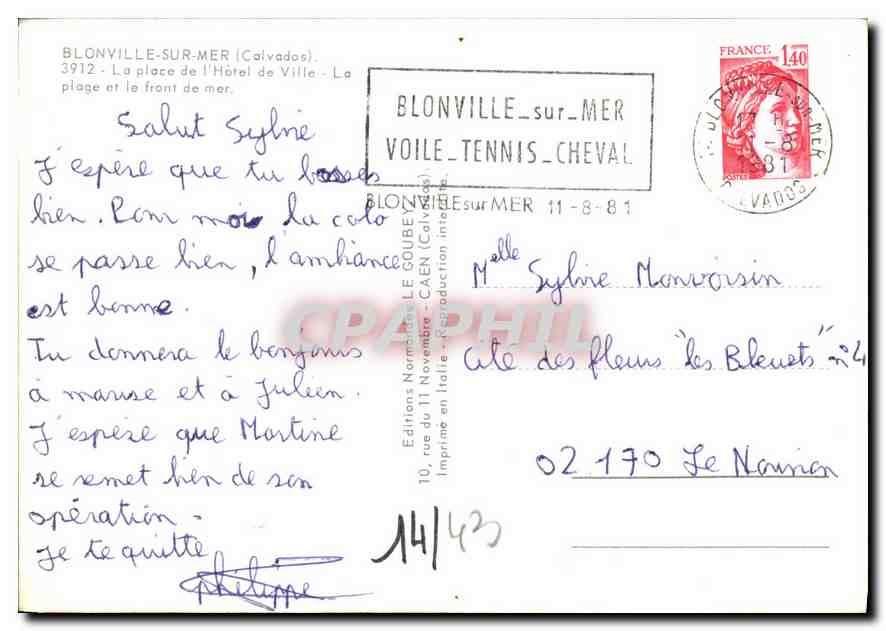 BLONVILLE-SUR-MER (Calvados).
3912 - La place de l'Hôtel de Ville - La
plage et le front de mer.
Salut Sylvie
J'espère que tu bosses
bien. Pour moi la colo
se passe bien, l'ambiance
est bonne.
Tu donnera le bonjours
à maruse et à Julien.
J'espère que Martine
se remet bien de son
opération.
Je te quitte
Philippe
14/43
Editions Normandes LE GOUBEY
10, rue du 11 Novembre - CAEN (Calvados).
Imprimé en Italie - Reproduction interdite.
BLONVILLE_sur_MER
VOILE_TENNIS_CHEVAL
BLONVILLE sur MER 11-8-81
FRANCE 1,40
POSTES
BLONVILLE-SUR-MER
11 H
-8
1981
CALVADOS
Melle Sylvie Monvoisin
Cité des fleurs "les Bleuets" n°4
02170 Le Nouvion
CPAPHIL